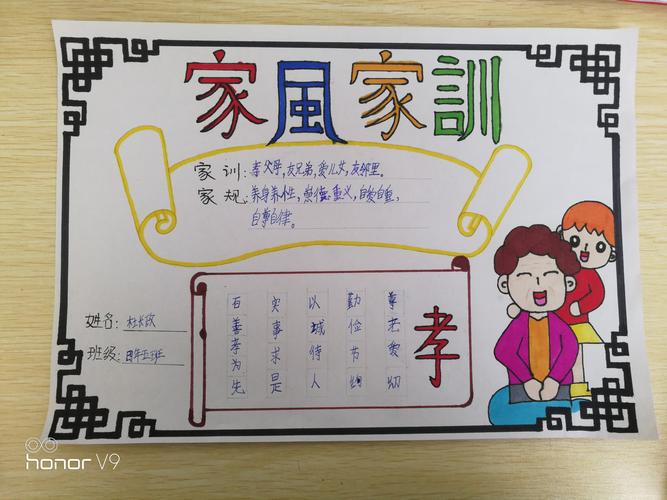 家風家訓
家训:孝父母,友兄弟,爱儿女,友邻里。
家规:养身养性,德重义,自爱自重,
自尊自律。
孝
尊老爱幼
勤俭节约
以城待人
实事求是
百善孝为先
姓名:杜
班级:四年五班
honor V9